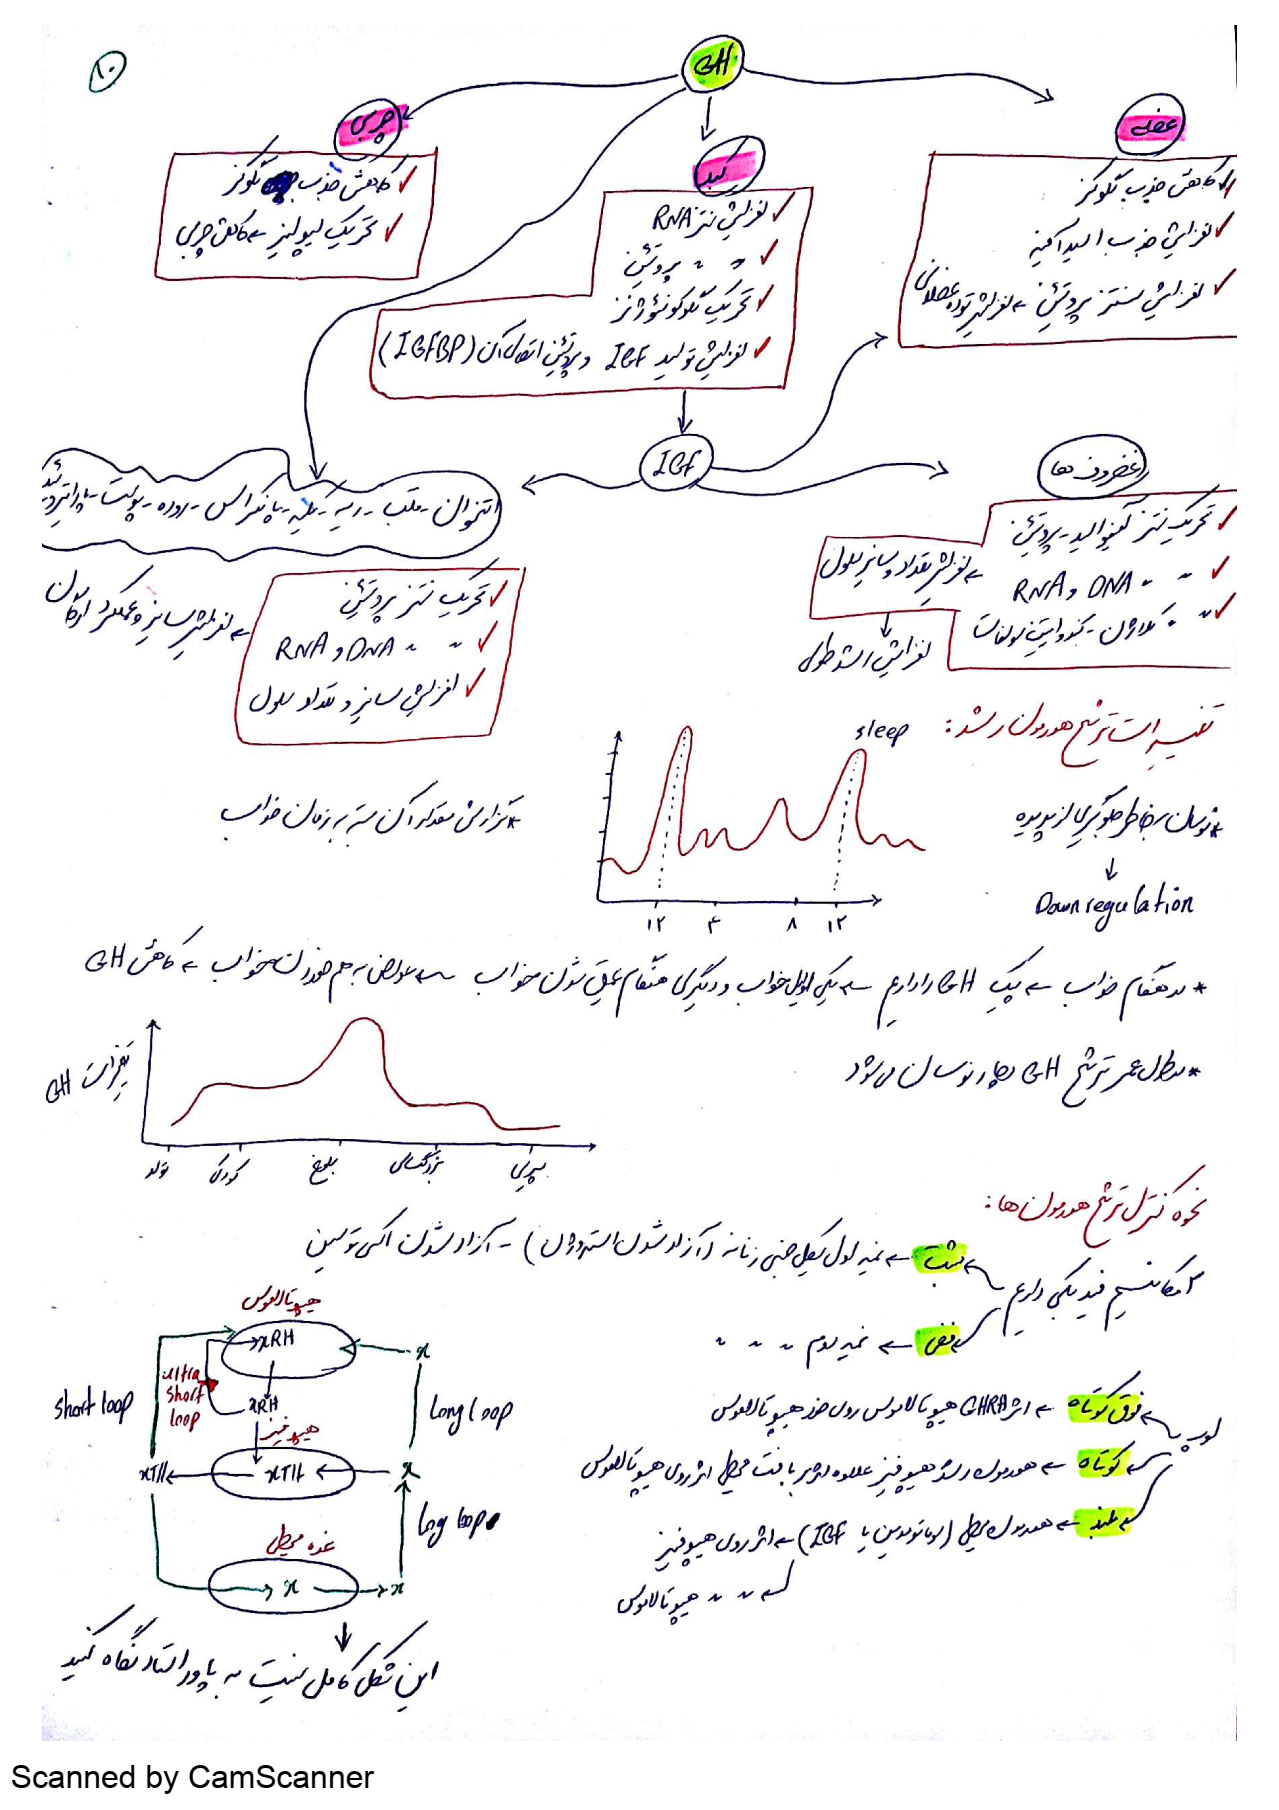 ۱۰
GH
عضله
✓ کاهش جذب گلوکز
✓ افزایش جذب اسید آمینه
✓ افزایش سنتز پروتئین ← افزایش توده عضلانی
کبد
✓ افزایش سنتز RNA
✓ 〃 〃 پروتئین
✓ تحریک گلوکونئوژنز
✓ افزایش تولید IGF و پروتئین اتصالی آن (IGFBP)
چربی
✓ کاهش جذب گلوکز
✓ تحریک لیپولیز ← کاهش چربی
IGF
غضروف ها
✓ تحریک سنتز آمینواسید - پروتئین
✓ 〃 〃 DNA و RNA
✓ 〃 〃 کلاژن - کندرواتین سولفات
← افزایش تعداد و سایز سلول
افزایش رشد طولی
استخوان - قلب - ریه - کلیه - پانکراس - روده - پوست - پاراتیروئید
✓ تحریک سنتز پروتئین
✓ 〃 〃 DNA و RNA
✓ افزایش سایز و تعداد سلول
← افزایش سایز و عملکرد ارگان
تغییرات ترشح هورمون رشد :
* نوسان بخاطر جلوگیری از پدیده
Down regulation
sleep
۱۲ ۴ ۸ ۱۲
* گزارش مقدار آن بسته به زمان خواب
* در هنگام خواب ← پیک GH را داریم ← یکی اوایل خواب و دیگری هنگام عمیق شدن خواب ← عوارض به هم خوردن خواب ← کاهش GH
* در طول عمر ترشح GH دچار نوسان می شود
تغییرات GH
تولد کودکی بلوغ بزرگسالی پیری
نحوه کنترل ترشح هورمون ها :
۲ مکانیسم فیدبکی داریم
مثبت ← نیمه اول سیکل جنسی زنانه (آزاد شدن استروژن) - آزاد شدن اکسی توسین
منفی ← نیمه دوم 〃 〃 〃
لوپ
فوق کوتاه ← اثر GHRH هیپوتالاموس روی خود هیپوتالاموس
کوتاه ← هورمون رشد هیپوفیز علاوه بر اثر بر بافت محیطی اثر روی هیپوتالاموس
بلند ← هورمون محیطی (سوماتومدین یا IGF) ← اثر روی هیپوفیز
← 〃 〃 هیپوتالاموس
هیپوتالاموس
xRH
ultra short loop
xRH
short loop
Long loop
x
هیپوفیز
xTH
xTH
x
Log loop
غده محیطی
x
x
این شکل کامل نیست به پاور استاد نگاه کنید
Scanned by CamScanner